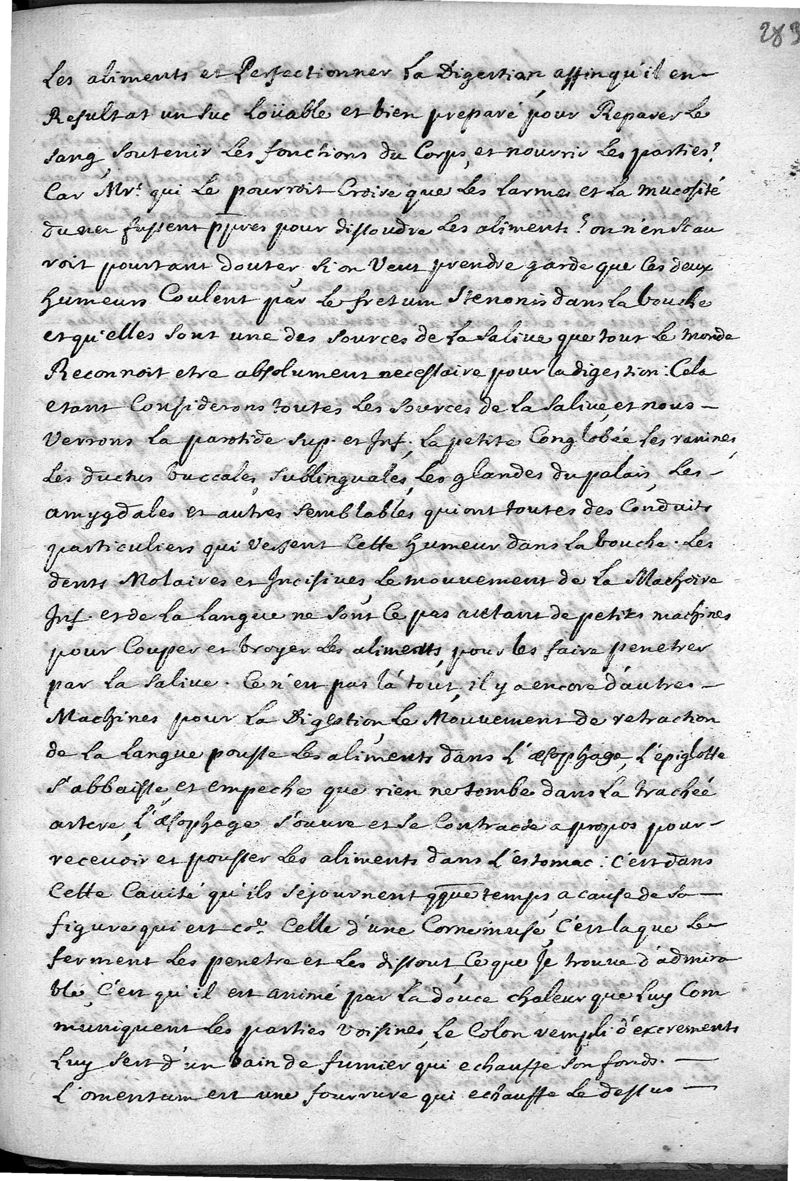 283
Les aliments et Perfectionner La Digestion affinqu'il en
Resultat un suc Loüable et bien preparé pour Reparer Le
sang, soutenir Les fonctions du Corps, et nourrir Les parties?
Car Mrs. qui Le pourroit Croire que Les Larmes et La mucosité
du nez fussent ppres pour dissoudre Les aliments? on n'en scau
roit pourtant douter, si on Veut prendre garde que Ces deux
humeurs Coulent par Le fretum Stenonis dans La bouche
et qu'elles sont une des sources de La salive que tout Le monde
Reconnoit etre absolument necessaire pour la digestion: Cela
etant Considerons toutes Les sources de La Salive, et nous
Verrons La parotide sup. et Inf. La petite Conglobée Les ranines,
Les ductus buccales, sublinguales, Les glandes du palais, Les
amygdales et autres semblables qui ont toutes des Conduits
particuliers qui Versent Cette humeur dans La bouche. Les
dents Molaires et Incisives, Le mouvement de La Machoire
Inf. et de La Langue ne sont Ce pas autant de petits machines
pour Couper et broyer Les aliments, pour les faire penetrer
par La Salive. Ce n'est pas là tout, il y a encore d'autres
Machines pour La Digestion, Le Mouvement de retraction
de La Langue pousse Les aliments dans L'œsophage, L'épiglotte
s'abbaisse, et empeche que rien ne tombe dans La trachée
artere, L'œsophage s'ouvre et se Contracte a propos pour
recevoir et pousser Les aliments dans L'estomac: C'est dans
Cette Cavité qu'ils sejournent qque temps, a cause de sa
figure qui est coe. Celle d'une Cornemuse, C'est la que Le
ferment Les penetre et Les dissout, Ce que Je trouve d'admira
ble, C'est qu'il est animé par La douce chaleur que Luy Com
muniquent Les parties voisines, Le Colon rempli d'excrements
Luy sert d'un bain de fumier qui echauffe son fonds.
L'omentum est une fourrure qui echauffe Le dessus